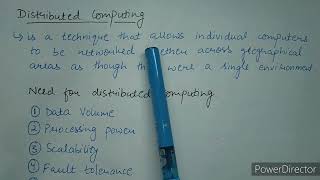 Distributed Computing
↳ is a technique that allows individual computers
to be networked across geographical
areas as though were a single environment
Need for distributed Computing
① Data Volume
② Processing power
③ Scalability
④ Fault tolerance
PowerDirector